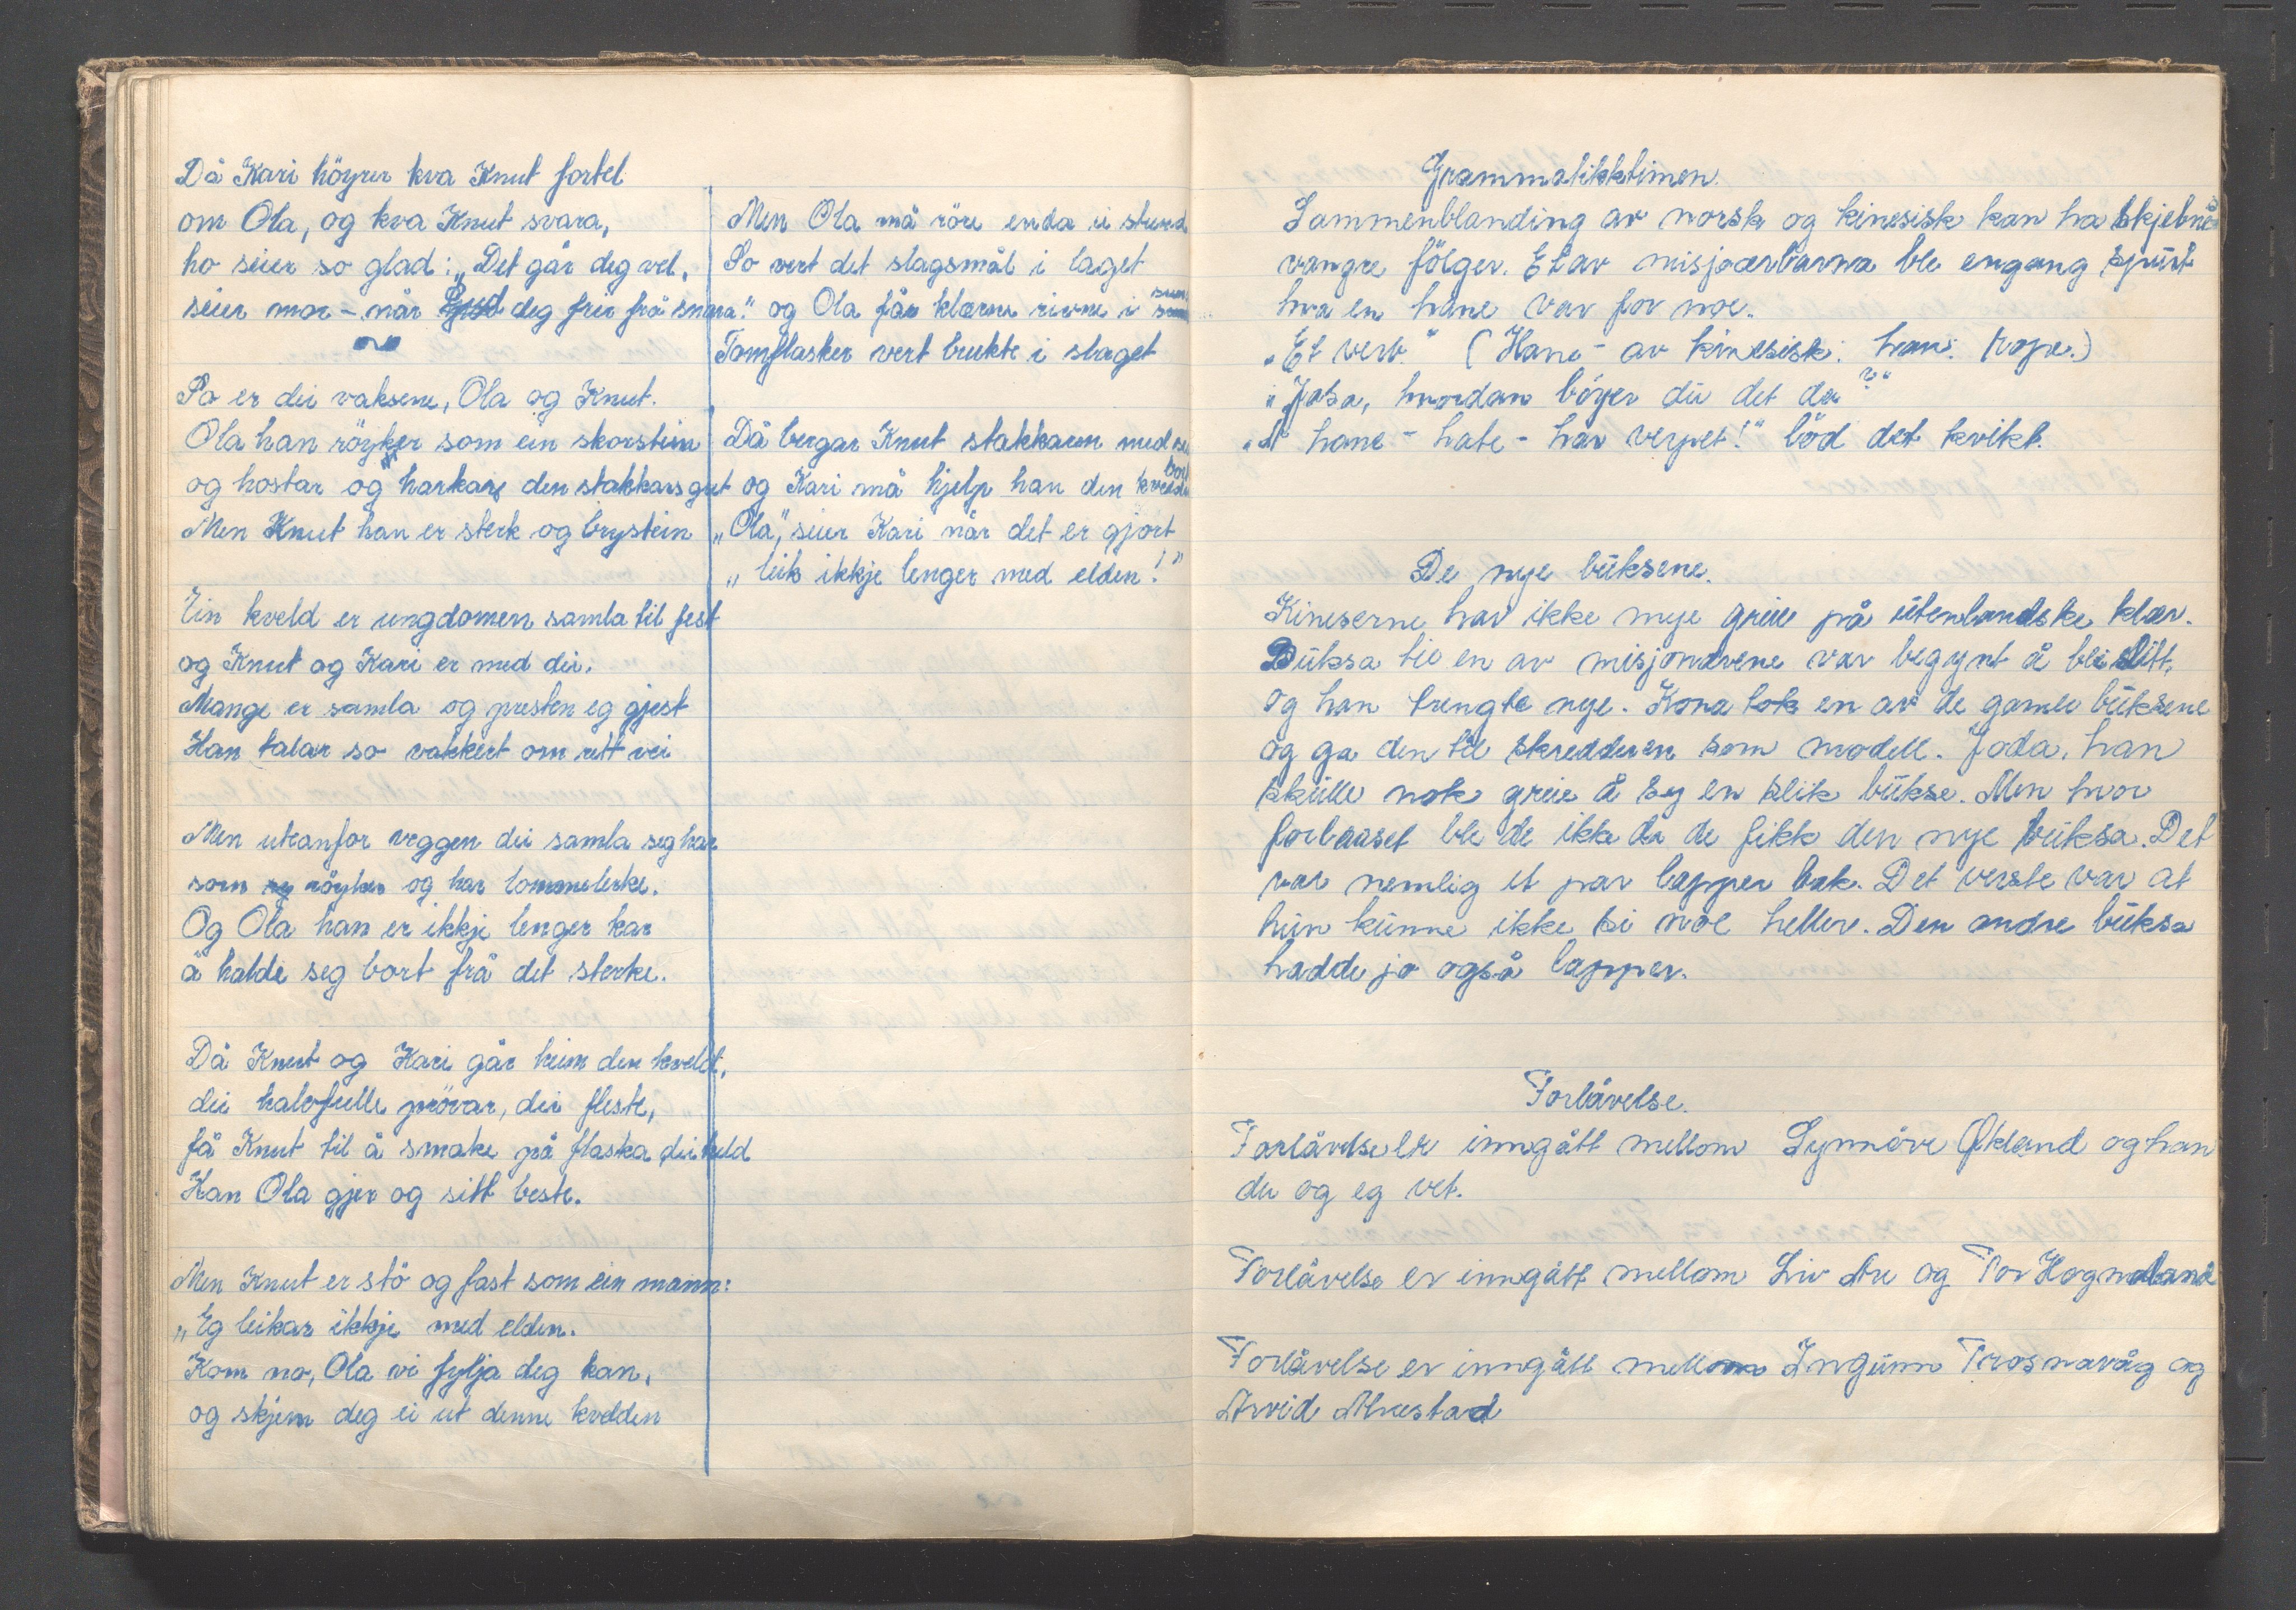 Då Kari höyrer kva Knut fortel
om Ola, og kva Knut svara,
ho seier so glad: „Det går deg vel,
seier mor - når Gud deg frir frå snara."
So er dei vaksene, Ola og Knut.
Ola han röyker som ein skorstein
og hostar og harkar den stakkars gut
Men Knut han er sterk og brystein
Ein kveld er ungdomen samla til fest
og Knut og Kari er med dei.
Mange er samla og presten eg gjest
Han talar so vakkert om rett vei
Men utanfor veggen dei samla seg har
som röyker og har lommelerke.
Og Ola han er ikkje lenger kar
å halde seg bort frå det sterke.
Då Knut og Kari går heim den kveld,
dei halvfulle prövar, dei fleste,
få Knut til å smake på flaska dei held
Han Ola gjer og sitt beste.
Men Knut er stö og fast som ein mann:
„Eg leikar ikkje med elden.
Kom no, Ola vi fylja deg kan,
og skjem deg ei ut denne kvelden
Men Ola må röre enda ei stund
So vert det slagsmål i laget
og Ola får klærne rivne i sun
Tomflasker vert brukte i slaget
Då bergar Knut stakkaren med se
og Kari må hjelp han den kvelden
„Ola", seier Kari når det er gjort
„leik ikkje lenger med elden!"
Grammatikktimen.
Sammenblanding av norsk og kinesisk kan ha skjebne
vangre fölger. Et av misjoærbarna ble engang spurt
hva en hane var for noe.
„Et verb." (Hane - av kinesisk: han: rope.)
„Jasa, hvordan böyer du det da?"
„Å hane - hate - har verpet!" löd det kvikt.
De nye buksene.
Kineserne har ikke mye greie på utenlandske klær.
Buksa til en av misjonærene var begynt å bli slitt,
og han trengte nye. Kona tok en av de gamle buksene
og ga den til skredderen som modell. Joda, han
skulle nok greie å sy en slik bukse. Men hvor
forbauset ble de ikke da de fikk den nye buksa. Det
var nemlig et par lapper bak. Det verste var at
hun kunne ikke si noe heller. Den andre buksa
hadde jo også lapper.
Forlåvelse.
Forlåvelse er inngått mellom Synnöve Økland og han
du og eg vet.
Forlåvelse er inngått mellom Liv Are og Tor Hognaland
Forlåvelse er inngått mellom Ingunn Trosnavåg og
Arvid Alvestad